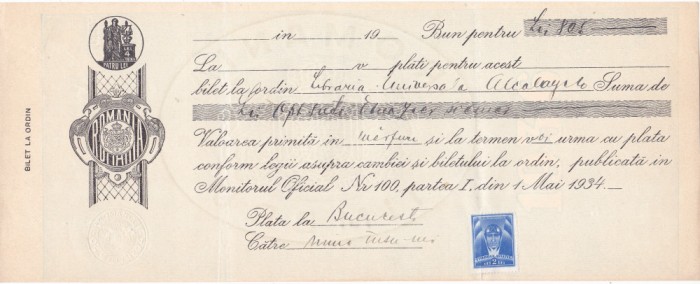 BILET LA ORDIN
PATRU LEI
4
ROMANIA
in 19 Bun pentru Lei 805
La v plăti pentru acest
bilet la ordin Libraria Universala Alcalay & Co Suma de
Lei Opt sute
Valoarea primită in mărfuri și la termen voi urma cu plata
conform legii asupra cambiei și biletului la ordin, publicată in
Monitorul Oficial Nr 100, partea I, din 1 Mai 1934.
Plata la București
Către
LEI 2